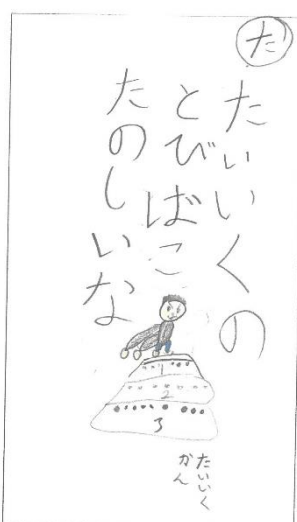 た
たいいくの
とびばこ
たのしいな
1
2
3
たいいく
かん